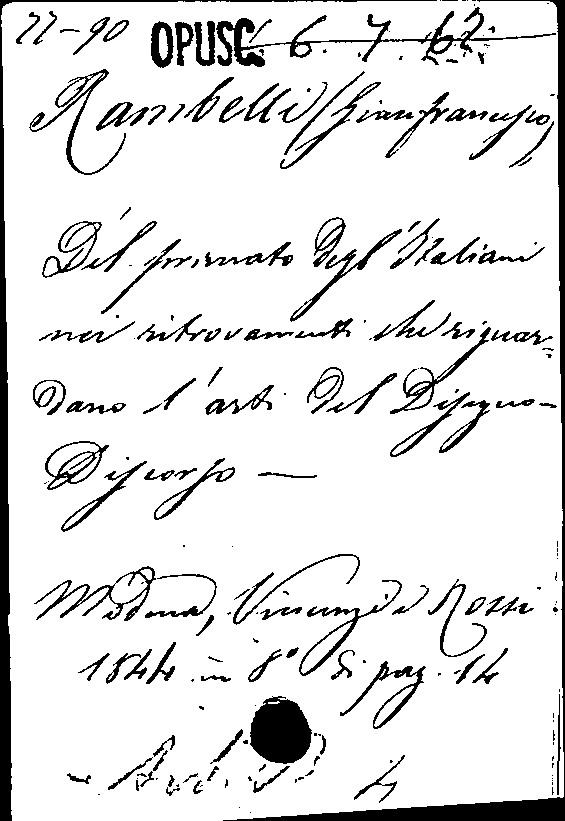 22-90 OPUSC. 6. 7. 62
Rambelli (Gianfrancesco)
Del primato degl'Italiani
nei ritrovamenti che riguar=
dano l'arti del Disegno—
Discorso —
Modena, Vincenzi e Rossi.
1844 in 8º di pag. 14
4